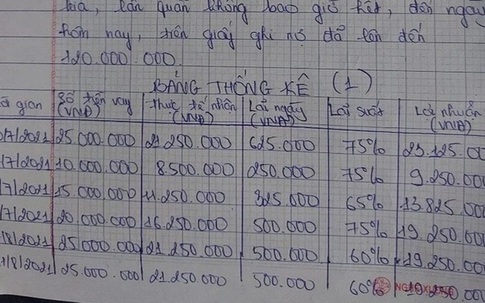 hía, lẩn quẩn không bao giờ hết, đến ngày
hôm nay, trên giấy ghi nợ đã lên đến
120.000.000.
BẢNG THỐNG KÊ (1)
gian Số tiền vay (VNĐ) Thực tế nhận (VNĐ) Lãi ngày (VNĐ) Lãi suất Lợi nhuận (VNĐ)
/7/2021 25.000.000 21.250.000 625.000 75% 23.125.00
/7/2021 10.000.000 8.500.000 250.000 75% 9.250.00
/7/2021 15.000.000 11.250.000 325.000 65% 13.825.00
/7/2021 20.000.000 16.250.000 500.000 75% 19.250.00
/8/2021 25.000.000 21.250.000 500.000 60% 19.250.00
/8/2021 25.000.000 21.250.000 500.000 60% 19.250.00